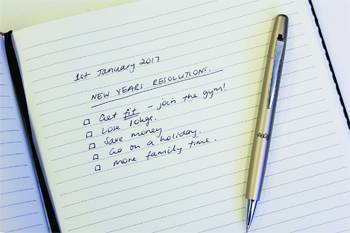 1st January 2017
NEW YEARS RESOLUTIONS.
Get fit - join the gym!
Lose 10kgs.
Save money
Go on a holiday.
More family time.